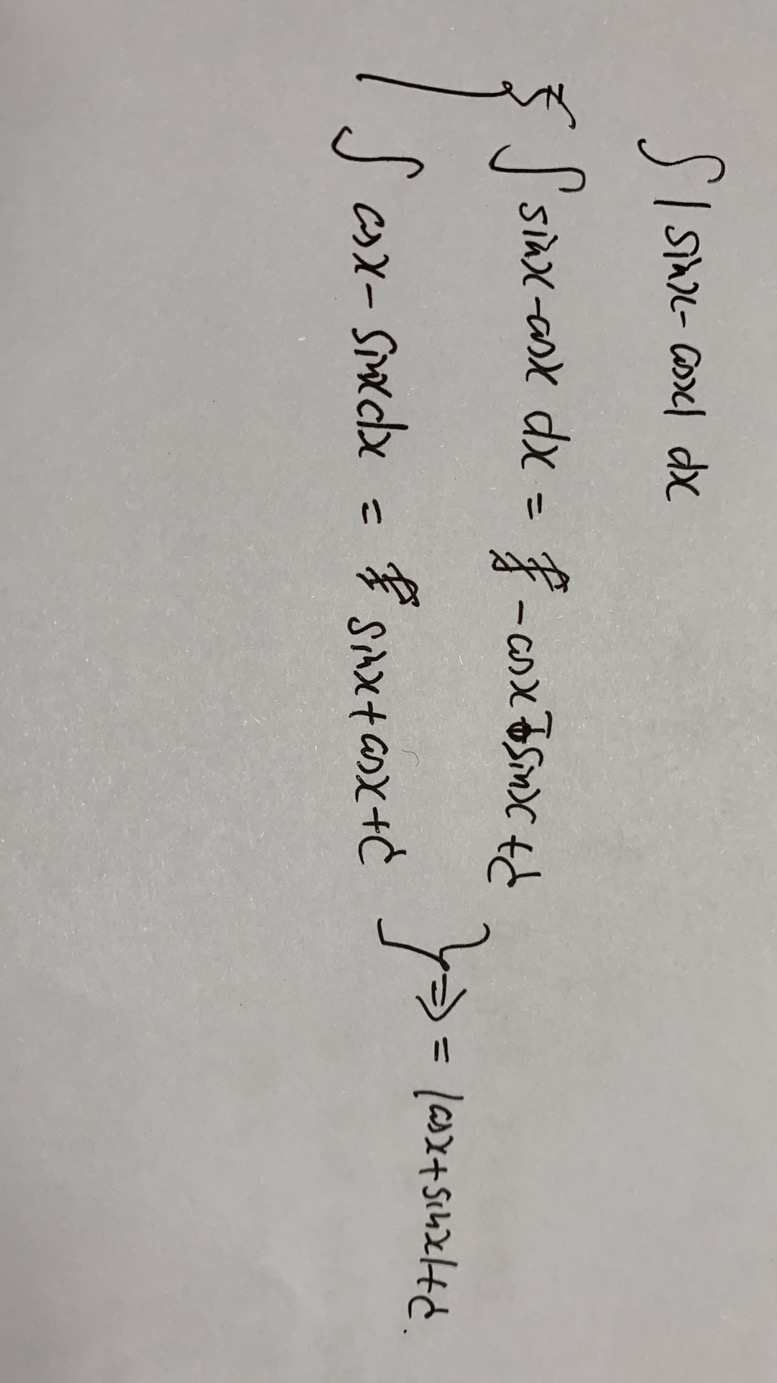 ∫ |sinx - cosx| dx
∫ sinx - cosx dx = - cosx - sinx + C
∫ cosx - sinx dx = sinx + cosx + C
⇒ = |cosx + sinx| + C.